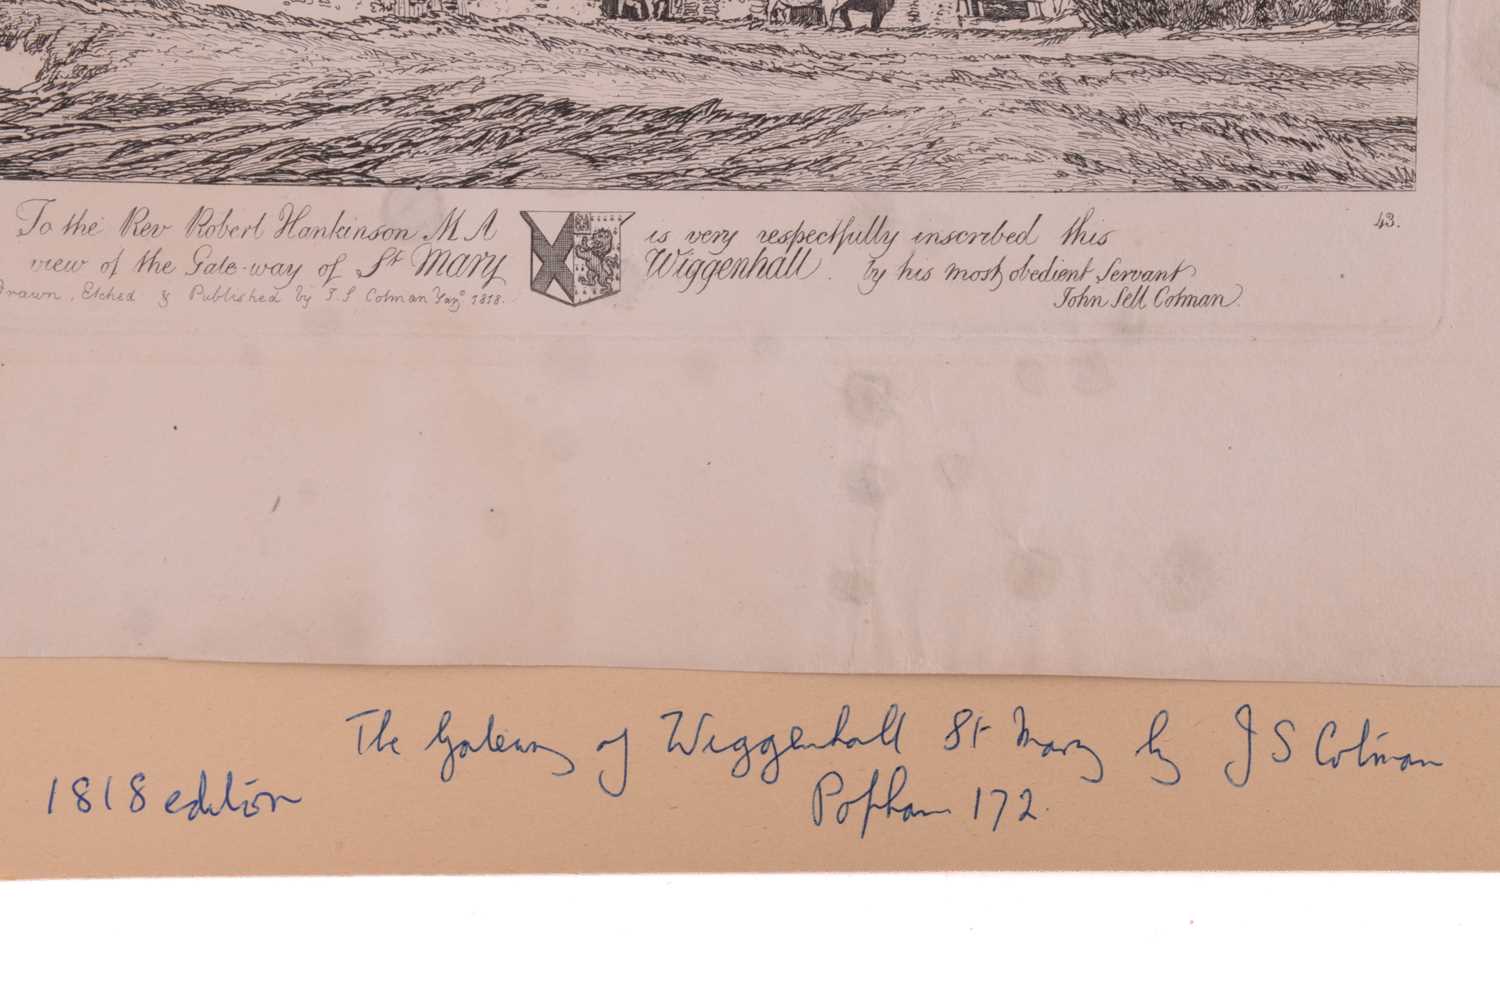 To the Rev Robert Hankinson M A is very respectfully inscribed this 43.
view of the Gate-way of St Mary Wiggenhall. by his most obedient Servant
Drawn, Etched & Published by J. S Cotman Jany. 1818. John Sell Cotman.
The Gateway of Wiggenhall St Mary by J S Cotman
1818 edition Popham 172.